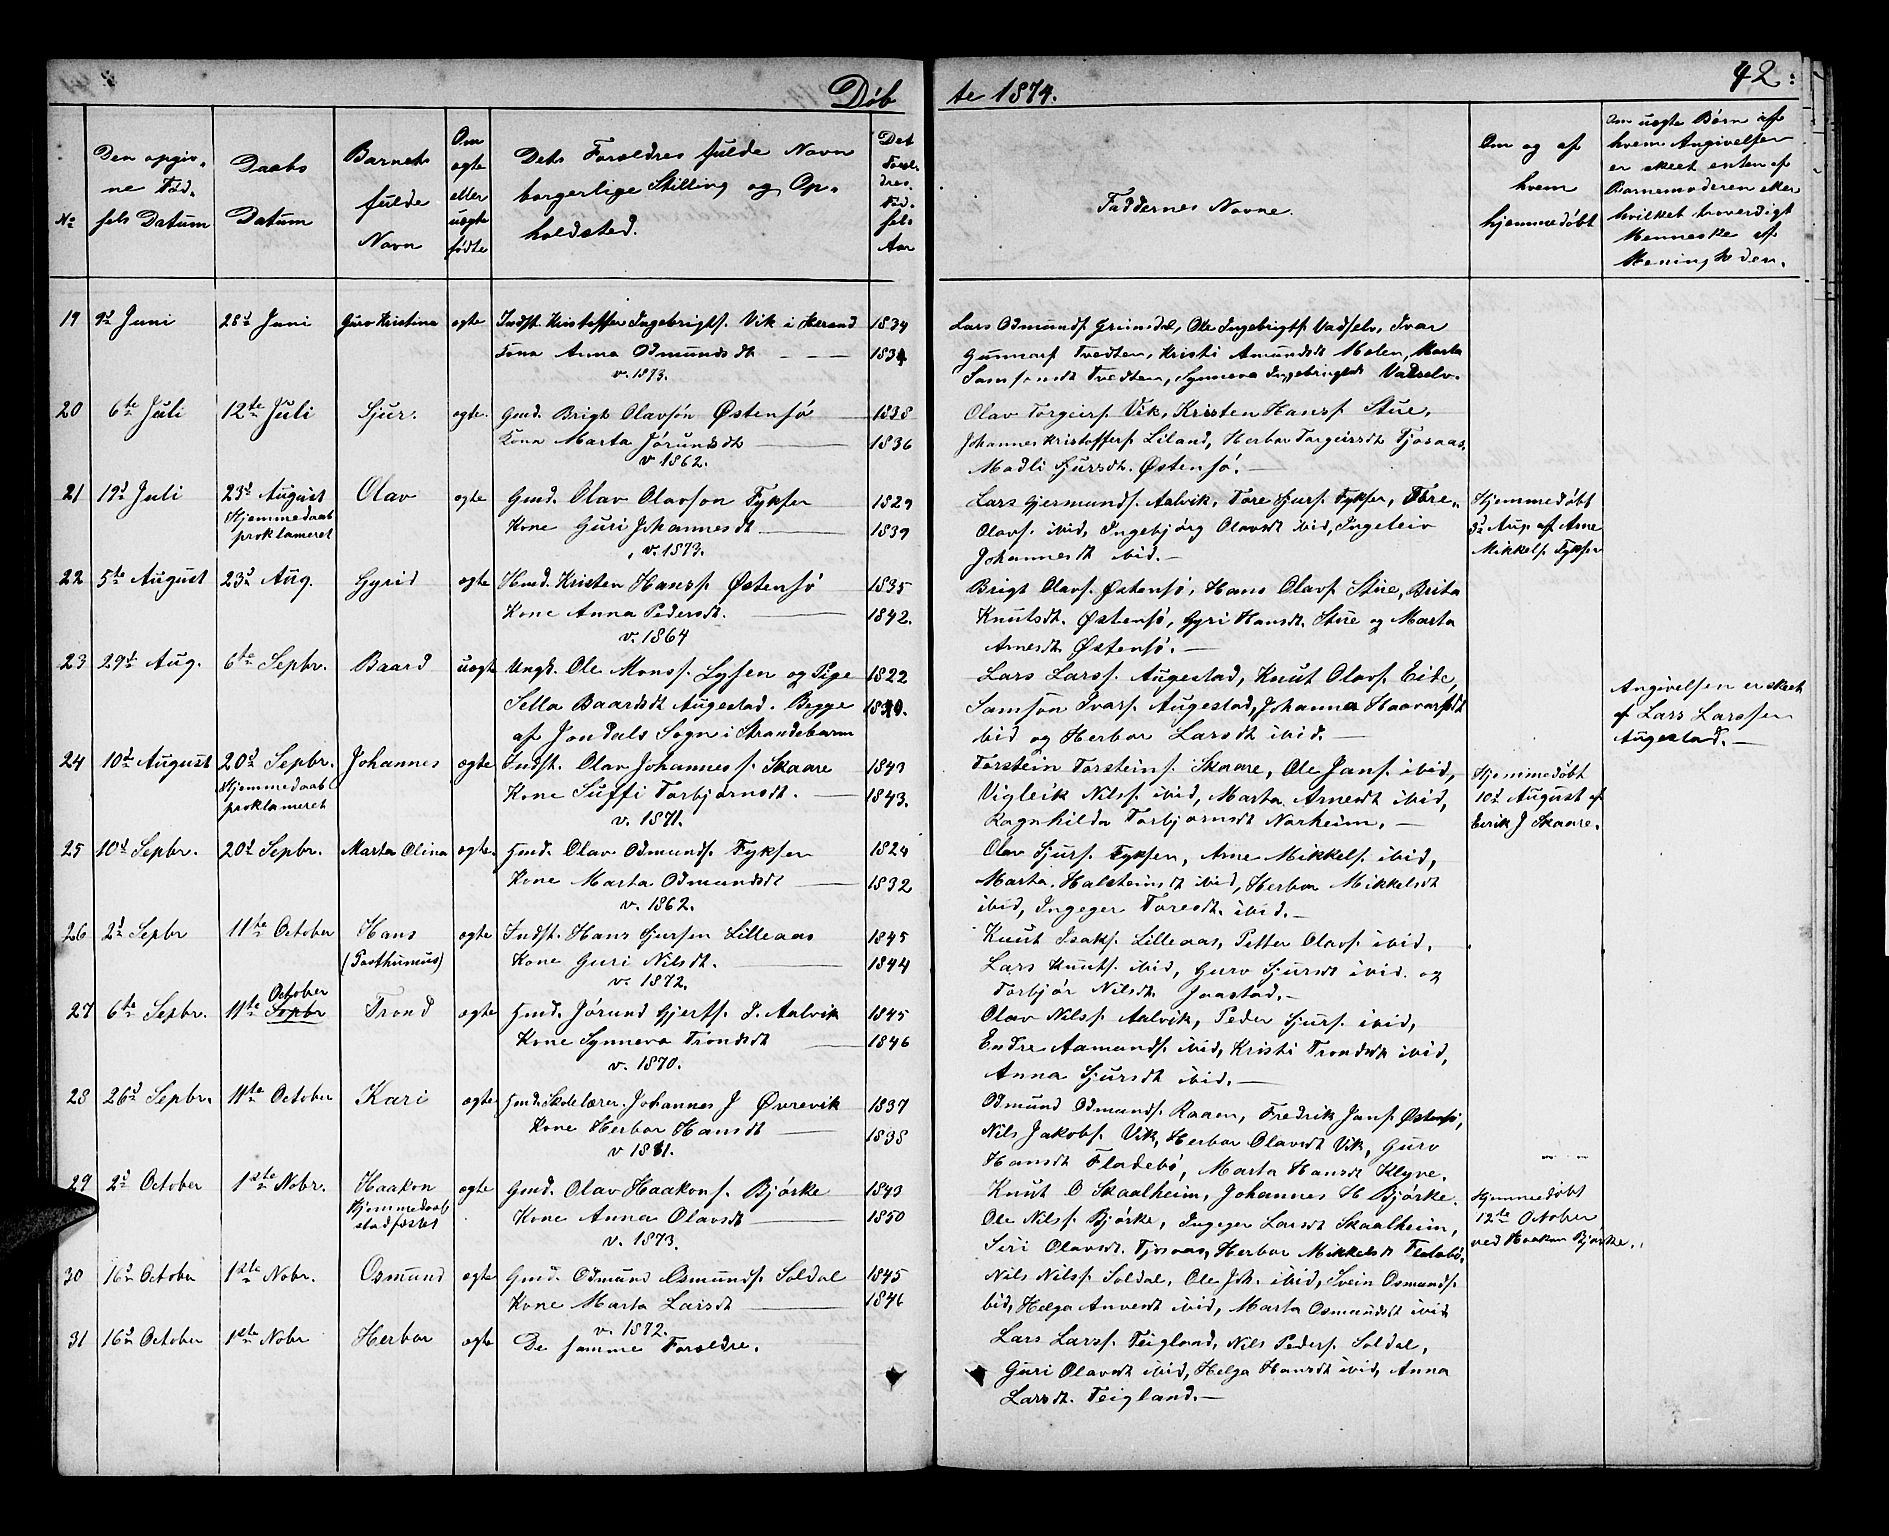 Døb
te 1874.
42.
No
Den opgiv-
ne Fød-
sels Datum
Daabs
Datum
Barnets
fulde
Navn
Om
ægte
eller
uægte
fødte
Dets Forældres fulde Navn
borgerlige Stilling og Op-
holdsted.
Det
Foræl-
dres
Fød-
sels
Aar
Faddernes Navne.
Om og af
hvem
hjemmedøbt
Om uægte Børn af
hvem Angivelsen
er skeet enten af
Barnemoderen eller
hvilket troverdigt
Menneske af
Menigheden.
19 9d Juni 28d Juni Guro Kristina ægte Indst. Kristoffer Ingebrigts. Vik i Herand 1834
Kone Anna Odmundsdt 1834
v. 1873.
Lars Odmunds. Grimsdal, Ole Ingebrigts. Vadselv, Ivar
Gunnars. Tvedten, Kristi Amundsdt Molen, Marta
Samsonsdt Tvedten, Synneva Ingebrigtsdt Vadselv.
20 6te Juli 12te Juli Sjur. ægte. Gmd. Brigt Olavsön Østensö 1838
Kone Marta Jörundsdt 1836
v 1862.
Olav Torgeirs. Vik, Kristen Hans. Stue,
Johannes Kristoffers. Liland, Herbor Torgeirsdt Tjosaas,
Madli Sjursdt. Østensö.
21 19d Juli 23d August Olav ægte Gmd. Olav Olavson Fyksen 1829
Hjemmedaab
proklameret
Kone Guri Johannesdt 1839
v. 1873.
Lars Gjermunds. Aalvik, Tore Sjurs. Fyksen, Tore
Olavs. ibid, Ingebjörg Olavsdt ibid, Ingeleiv
Johannesdt ibid.
Hjemmedøbt
3d Aug. af Arne
Mikkels. Fyksen
22 5te August 23d Aug. Gyrid ægte Hmd. Kristen Hanss. Østensö 1835
Kone Anna Pedersdt. 1842.
v. 1864
Brigt Olavs. Østensö, Hans Olavs. Stue, Brita
Knutsdt. Østensö, Gyri Hansdt. Stue og Marta
Arnesdt Østensö.
23 29d Aug. 6te Sepbr. Baard uægte Ungk. Ole Monss. Lysen og Pige 1822
Sella Baardsdt Augestad. Begge
af Jondals Sogn i Strandebarm
Lars Larss. Augestad, Knut Olavs. Eide,
Samson Ivars. Augestad, Johanna Haavarsdt
ibid og Herbor Larsdt ibid.
Angivelsen er skeet
af Lars Larssen
Augestad.
24 10d August 20d Sepbr. Johannes ægte Indst. Olav Johanness. Skaare 1843
Hjemmedaab
proklameret
Kone Suffi Torbjörnsdt. 1843.
v. 1871.
Torstein Torsteins. Skaare, Ole Jans. ibid,
Vigleik Nils. ibid, Marta Arnesdt ibid,
Ragnhilda Torbjørnsdt Norheim.
Hjemmedøbt
10d August af
Eirik J Skaare.
25 10d Sepbr. 20d Sepbr. Marta Olina ægte. Gmd. Olav Odmunds. Fyksen 1824
Kone Marta Odmundsdt 1832
v. 1862.
Olav Sjurs. Fyksen, Arne Mikkels. ibid,
Marta Halsteinsdt ibid, Herbor Mikkelsdt
ibid, Ingeger Toresdt. ibid.
26 2d Sepbr 11te October Hans ægte Indst. Hans Sjursen Lilleaas 1845
(Posthumus)
Kone Guri Nilsdt. 1844
v. 1872.
Knut Isaks. Lilleaas, Petter Olavs. ibid.
Lars Knuts. ibid, Guro Sjursdt ibid. og
Torbjør Nilsdt. Jaastad.
27 6te Sepbr. 11te October Sepbr Trond ægte Gmd. Jörund Gjerts. I. Aalvik 1845
Kone Synneva Trondsdt 1846
v. 1870.
Olav Nils. Aalvik, Peder Sjurs. ibid,
Endre Aamunds. ibid, Kristi Trondsdt ibid,
Anna Sjursdt ibid.
28 26d Sepbr. 11te October Kari ægte Gmd. Skolelærer. Johannes J Øvrevik 1837
Kone Herbor Hansdt 1838
Odmund Odmunds. Raaen, Fredrik Jans. Østensö,
Nils Jakobs. Vik, Herbor Olavsdt Vik, Guro
Hansdt Fladebö, Marta Hansdt Klyve.
29 2d October 1ste Nobr. Haakon ægte Gmd. Olav Haakons. Bjørke 1843
Hjemmedaab
stadfæstet
Kone Anna Olavsdt 1850
v. 1873.
Knut O Skaalheim, Johannes H Bjørke.
Ole Nils. Bjørke, Ingeger Larsdt Skaalheim,
Siri Olavsdt. Tjosaas, Herbor Mikkelsdt Flatabö.
Hjemmedøbt
12te October
ved Haakon Bjørke.
30 16d October 1ste Nobr. Osmund ægte Gmd. Odmund Osmunds. Soldal 1845
Kone Marta Larsdt 1846
v. 1872.
Nils Nils. Soldal, Ole Joh. ibid, Svein Osmunds.
ibid, Helga Anvedt ibid, Marta Osmundsdt ibid
31 16d October 1ste Nobr Herbor ægte De samme Forældre.
Lars Larss. Teigland, Nils Peders. Soldal,
Guri Olavsdt ibid, Helga Hansdt ibid, Anna
Larsdt. Teigland.